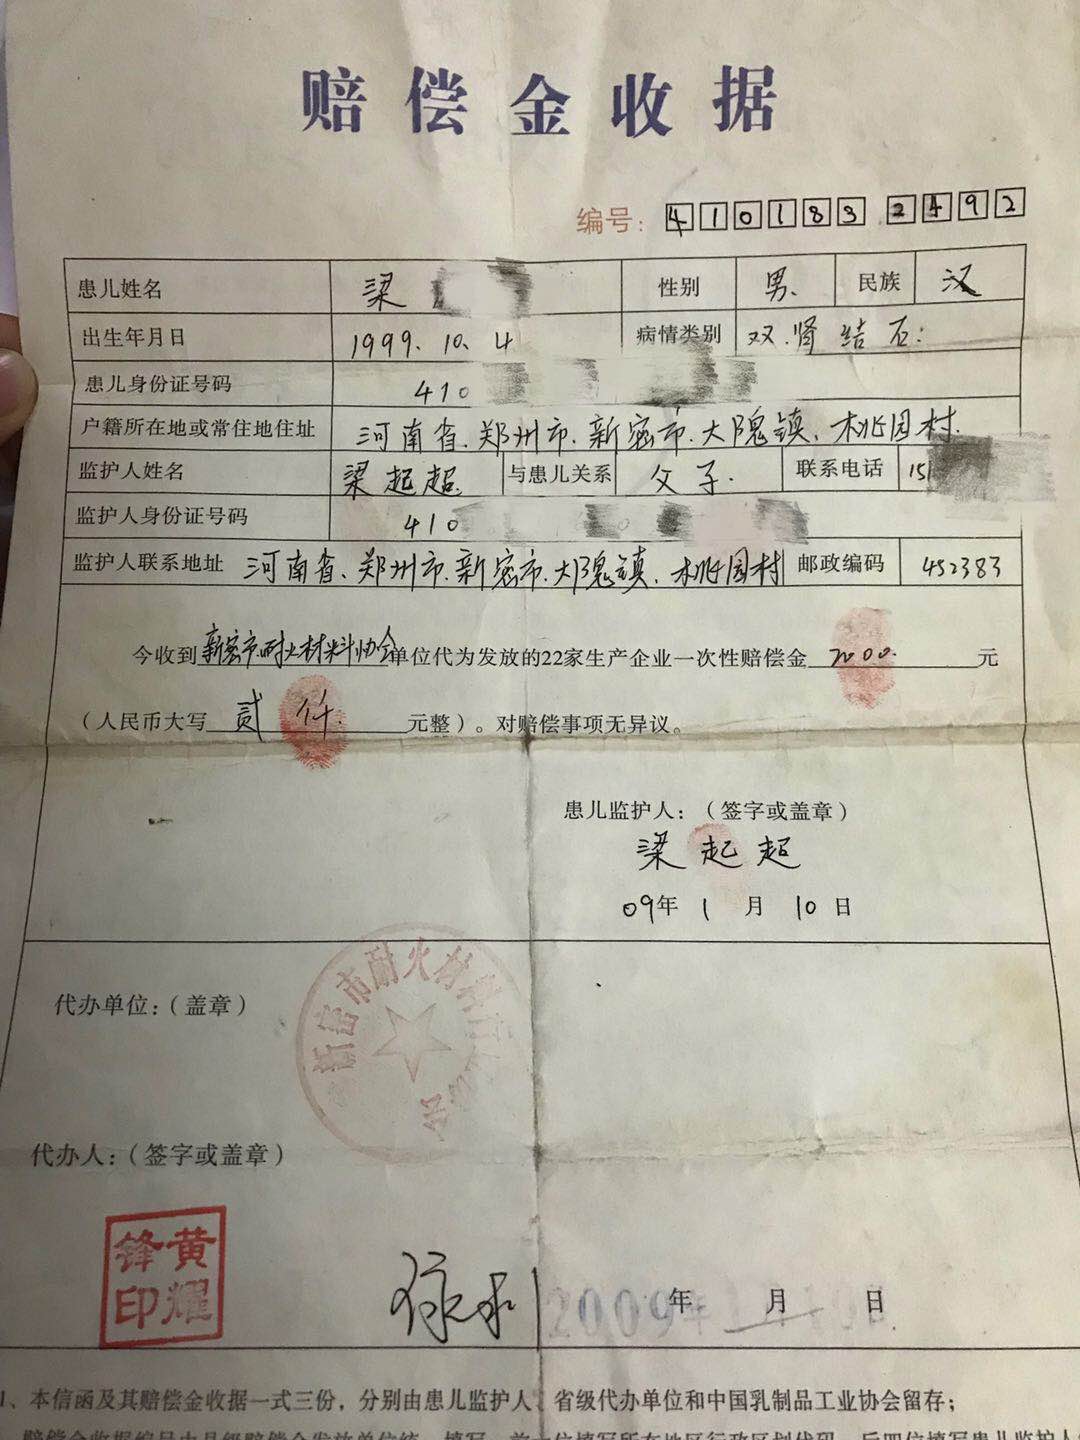 赔偿金收据
编号：4101832492
患儿姓名 梁 性别 男 民族 汉
出生年月日 1999.10.4 病情类别 双肾结石
患儿身份证号码 410
户籍所在地或常住地住址 河南省.郑州市.新密市.大隗镇.桃园村.
监护人姓名 梁起超 与患儿关系 父子. 联系电话 15
监护人身份证号码 410
监护人联系地址 河南省.郑州市.新密市.大隗镇.桃园村 邮政编码 452383
今收到新密市耐火材料协会单位代为发放的22家生产企业一次性赔偿金2000.元
（人民币大写 贰仟 元整）。对赔偿事项无异议。
患儿监护人：（签字或盖章）
梁起超
09年1月10日
代办单位：（盖章）
新密市耐火材料 会
代办人：（签字或盖章）
黄耀锋印
2009年 月 日
1、本信函及其赔偿金收据一式三份，分别由患儿监护人、省级代办单位和中国乳制品工业协会留存；